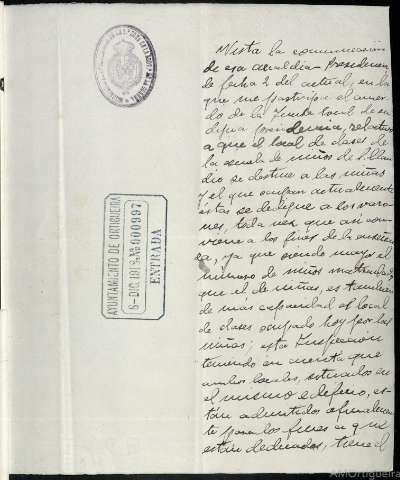 AYUNTAMIENTO DE ORTIGUEIRA
Nº 000997
ENTRADA
Vista la comunicación
de esa alcaldía-Presidencia
de fecha 2 del actual, en la
que me participa el acuer
do de la Junta local de su
digna presidencia, relativo
a que el local de clases de
la escuela de niños de
se destine a las niñas
y el que ocupan actualmente
éstas se dedique a los varo
nes, toda vez que así con
viene a los fines de la enseñan
za, ya que siendo mayor el
número de niños matriculados
que el de niñas, es también
de más capacidad el local
de clases ocupado hoy por las
niñas; esta Inspección
teniendo en cuenta que
ambos locales, situados en
el mismo edificio, es
tán admitidos
te para los fines a que
están dedicados, tiene el
AMOrtigueira